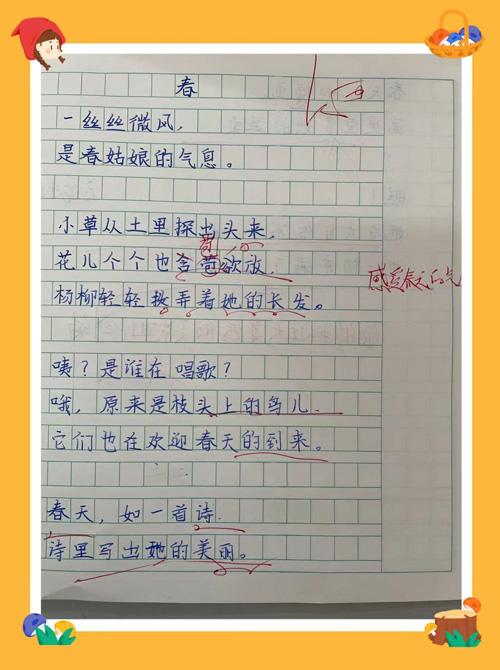 春
一丝丝微风，
是春姑娘的气息。
小草从土里探出头来，
苞
花儿个个也含苞欲放，
杨柳轻轻拨弄着她的长发。
感受春天的气
咦？是谁在唱歌？
哦，原来是枝头上的鸟儿．
它们也在欢迎春天的到来。
春天，如一首诗．
诗里写出她的美丽。